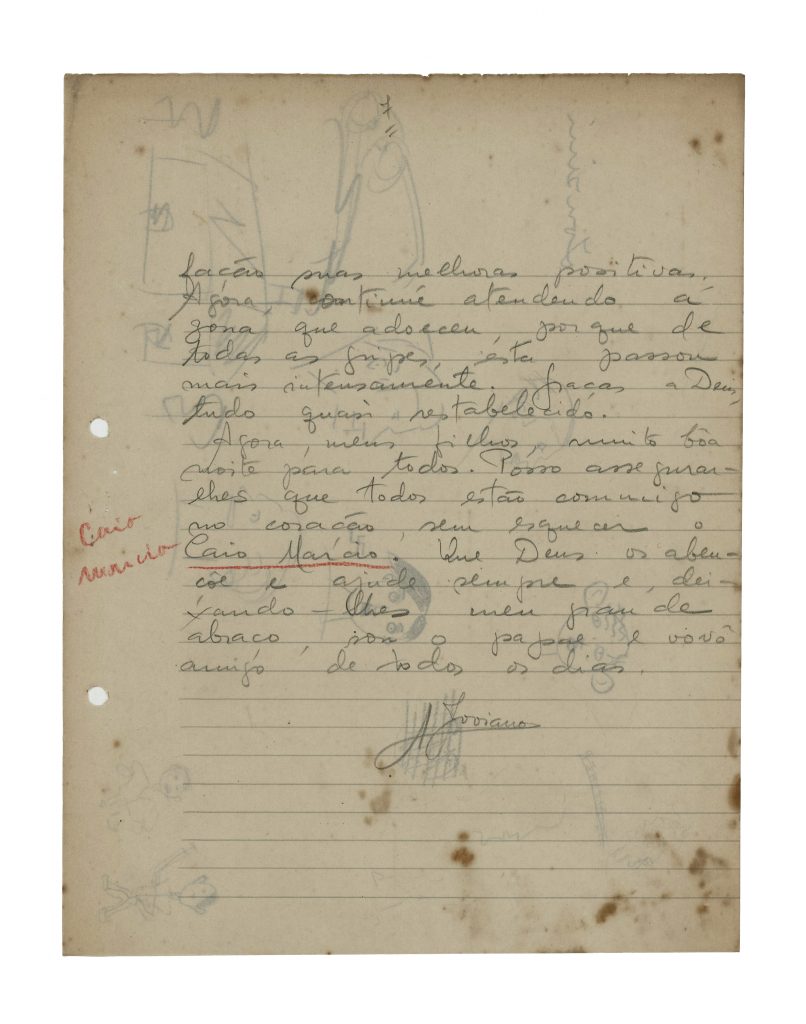 facção suas melhoras positivas.
Agóra, continúe atendendo á
zona que adoeceu, porque de
todas as gripes, esta passou
mais intensamente. Graças a Deus,
tudo quasi restabelecido.
Agora, meus filhos, muito bôa
noite para todos. Posso assegurar-
lhes que todos estão commigo
no coração, sem esquecer o
Caio Marcio. Que Deus os aben-
çôe e ajude sempre e, dei-
xando-lhes meu grande
abraço, sou o papae e vovô
amigo de todos os dias.
A Joviano
Caio
Marcio